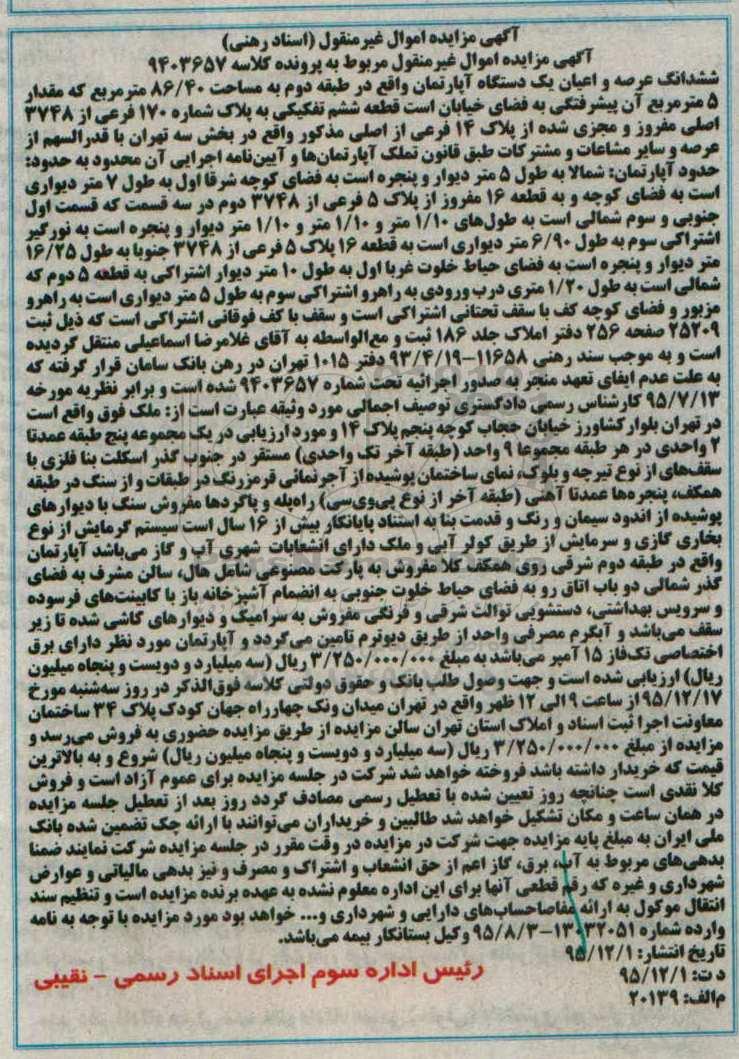 آگهی مزایده اموال غیرمنقول (اسناد رهنی)
آگهی مزایده اموال غیرمنقول مربوط به پرونده کلاسه ۹۴۰۳۶۵۷
ششدانگ عرصه و اعیان یک دستگاه آپارتمان واقع در طبقه دوم به مساحت ۸۶/۴۰ مترمربع که مقدار
۵ مترمربع آن پیشرفتگی به فضای خیابان است قطعه ششم تفکیکی به پلاک شماره ۱۷۰ فرعی از ۳۷۴۸
اصلی مفروز و مجزی شده از پلاک ۱۴ فرعی از اصلی مذکور واقع در بخش سه تهران با قدرالسهم از
عرصه و سایر مشاعات و مشترکات طبق قانون تملک آپارتمان‌ها و آیین‌نامه اجرایی آن محدود به حدود:
حدود آپارتمان: شمالا به طول ۵ متر دیوار و پنجره است به فضای کوچه شرقا اول به طول ۷ متر دیواری
است به فضای کوچه و به قطعه ۱۶ مفروز از پلاک ۵ فرعی از ۳۷۴۸ دوم در سه قسمت که قسمت اول
جنوبی و سوم شمالی است به طول‌های ۱/۱۰ متر و ۱/۱۰ متر و ۱/۱۰ متر دیوار و پنجره است به نورگیر
اشتراکی سوم به طول ۶/۹۰ متر دیواری است به قطعه ۱۶ پلاک ۵ فرعی از ۳۷۴۸ جنوبا به طول ۱۶/۲۵
متر دیوار و پنجره است به فضای حیاط خلوت غربا اول به طول ۱۰ متر دیوار اشتراکی به قطعه ۵ دوم که
شمالی است به طول ۱/۲۰ متری درب ورودی به راهرو اشتراکی سوم به طول ۵ متر دیواری است به راهرو
مزبور و فضای کوچه کف با سقف تحتانی اشتراکی است و سقف با کف فوقانی اشتراکی است که ذیل ثبت
۲۵۲۰۹ صفحه ۲۵۶ دفتر املاک جلد ۱۸۶ ثبت و مع‌الواسطه به آقای غلامرضا اسماعیلی منتقل گردیده
است و به موجب سند رهنی ۱۱۶۵۸-۹۳/۴/۱۹ دفتر ۱۰۱۵ تهران در رهن بانک سامان قرار گرفته که
به علت عدم ایفای تعهد منجر به صدور اجرائیه تحت شماره ۹۴۰۳۶۵۷ شده است و برابر نظریه مورخه
۹۵/۷/۱۳ کارشناس رسمی دادگستری توصیف اجمالی مورد وثیقه عبارت است از: ملک فوق واقع است
در تهران بلوار کشاورز خیابان حجاب کوچه پنجم پلاک ۱۴ و مورد ارزیابی در یک مجموعه پنج طبقه عمدتا
۲ واحدی در هر طبقه مجموعا ۹ واحد (طبقه آخر تک واحدی) مستقر در جنوب گذر اسکلت بنا فلزی با
سقف‌های از نوع تیرچه و بلوک، نمای ساختمان پوشیده از آجرنمائی قرمزرنگ در طبقات و از سنگ در طبقه
همکف، پنجره‌ها عمدتا آهنی (طبقه آخر از نوع پی‌وی‌سی) راه‌پله و پاگردها مفروش سنگ با دیوارهای
پوشیده از اندود سیمان و رنگ و قدمت بنا به استناد پایانکار بیش از ۱۶ سال است سیستم گرمایش از نوع
بخاری گازی و سرمایش از طریق کولر آبی و ملک دارای انشعابات شهری آب و گاز می‌باشد آپارتمان
واقع در طبقه دوم شرقی روی همکف کلا مفروش به پارکت مصنوعی شامل هال، سالن مشرف به فضای
گذر شمالی دو باب اتاق رو به فضای حیاط خلوت جنوبی به انضمام آشپزخانه باز با کابینت‌های فرسوده
و سرویس بهداشتی، دستشویی توالت شرقی و فرنگی مفروش به سرامیک و دیوارهای کاشی شده تا زیر
سقف می‌باشد و آبگرم مصرفی واحد از طریق دیوترم تامین می‌گردد و آپارتمان مورد نظر دارای برق
اختصاصی تک‌فاز ۱۵ آمپر می‌باشد به مبلغ ۳/۲۵۰/۰۰۰/۰۰۰ ریال (سه میلیارد و دویست و پنجاه میلیون
ریال) ارزیابی شده است و جهت وصول طلب بانک و حقوق دولتی کلاسه فوق‌الذکر در روز سه‌شنبه مورخ
۹۵/۱۲/۱۷ از ساعت ۹ الی ۱۲ ظهر واقع در تهران میدان ونک چهارراه جهان کودک پلاک ۳۴ ساختمان
معاونت اجرا ثبت اسناد و املاک استان تهران سالن مزایده از طریق مزایده حضوری به فروش می‌رسد و
مزایده از مبلغ ۳/۲۵۰/۰۰۰/۰۰۰ ریال (سه میلیارد و دویست و پنجاه میلیون ریال) شروع و به بالاترین
قیمت که خریدار داشته باشد فروخته خواهد شد شرکت در جلسه مزایده برای عموم آزاد است و فروش
کلا نقدی است چنانچه روز تعیین شده با تعطیل رسمی مصادف گردد روز بعد از تعطیل جلسه مزایده
در همان ساعت و مکان تشکیل خواهد شد طالبین و خریداران می‌توانند با ارائه چک تضمین شده بانک
ملی ایران به مبلغ پایه مزایده جهت شرکت در مزایده در وقت مقرر در جلسه مزایده شرکت نمایند ضمنا
بدهی‌های مربوط به آب، برق، گاز اعم از حق انشعاب و اشتراک و مصرف و نیز بدهی مالیاتی و عوارض
شهرداری و غیره که رقم قطعی آنها برای این اداره معلوم نشده به عهده برنده مزایده است و تنظیم سند
انتقال موکول به ارائه مفاصاحساب‌های دارایی و شهرداری و... خواهد بود مورد مزایده با توجه به نامه
وارده شماره ۱۳۰۳۲۰۵۱-۹۵/۸/۳ وکیل بستانکار بیمه می‌باشد.
تاریخ انتشار: ۹۵/۱۲/۱
د ت: ۹۵/۱۲/۱
رئیس اداره سوم اجرای اسناد رسمی - نقیبی
م‌الف: ۲۰۱۳۹